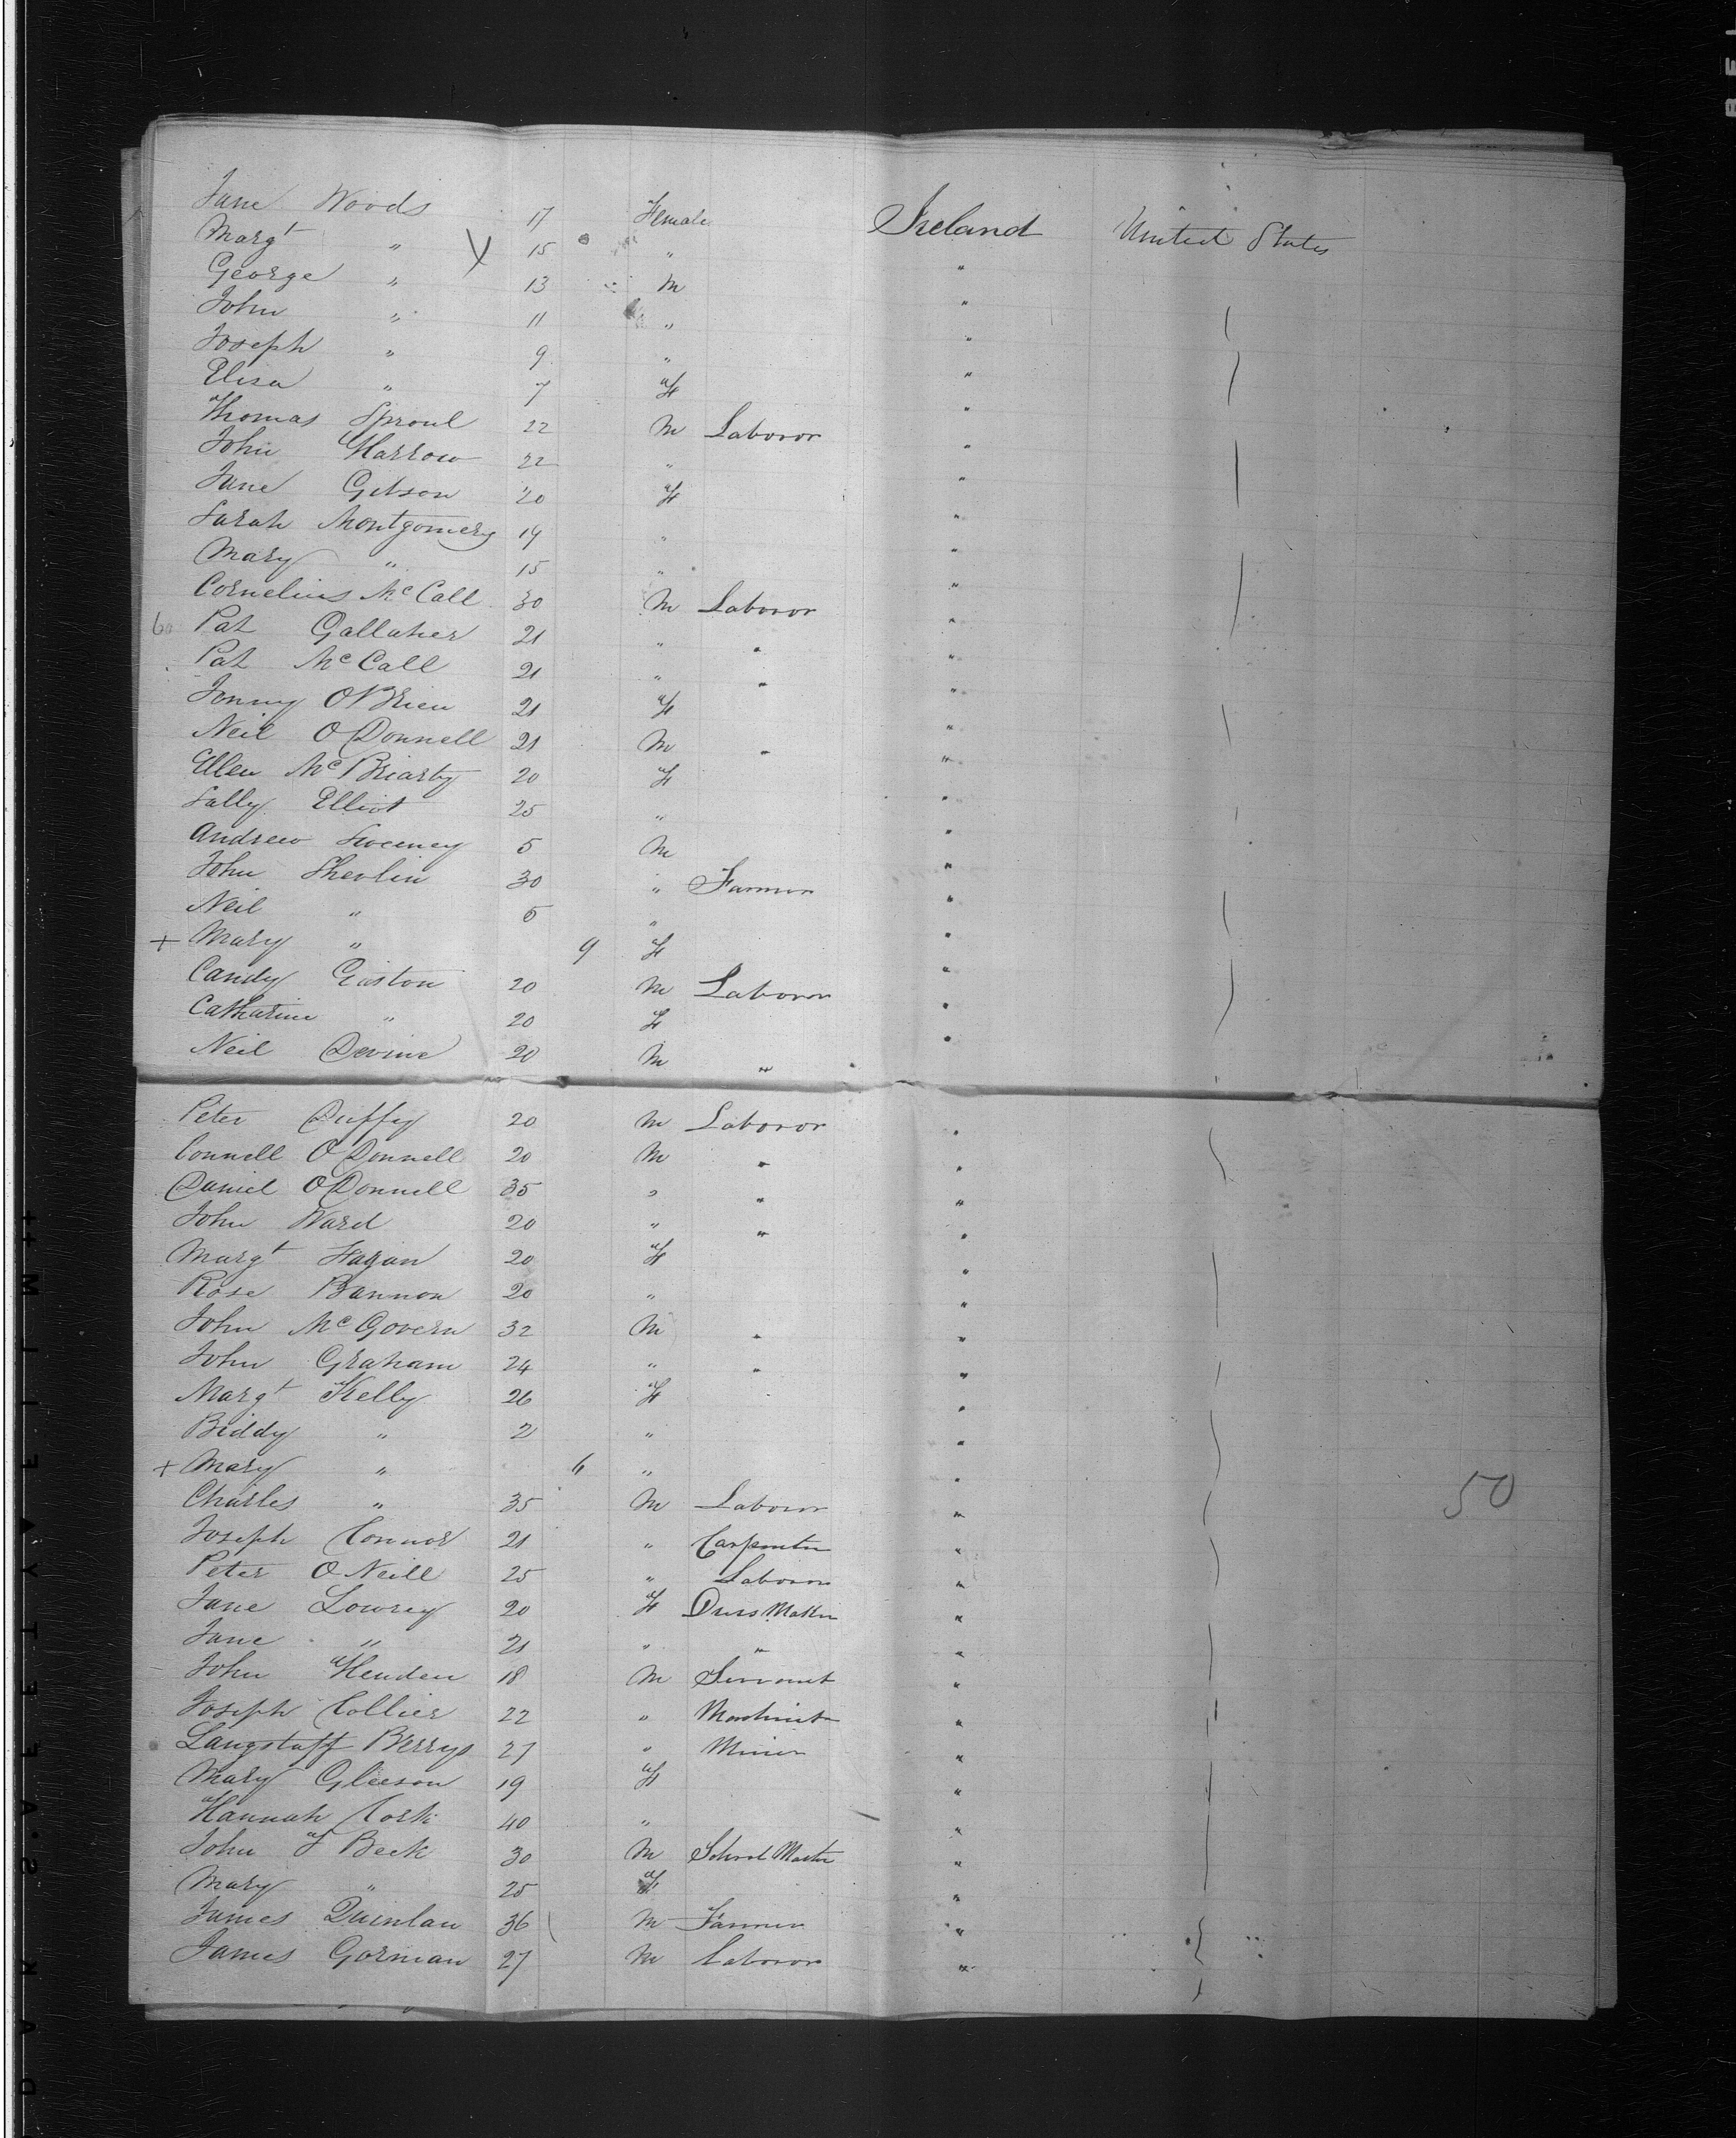 Jane Woods 17 Female Ireland United States
Margt " 15 " "
George " 13 M "
John " 11 " "
Joseph " 9 " "
Elisa " 7 F "
Thomas Sproul 22 M Laboror "
John Harrow 22 " "
Jane Gibson 20 F "
Sarah Montgomery 19 " "
Mary " 15 " "
Cornelius McCall 30 M Laboror "
Pat Gallaher 21 " " "
Pat McCall 21 " " "
Jenny O'Brien 21 F "
Neil O Donnell 21 M " "
Ellen McBriarty 20 F "
Sally Elliot 25 " "
Andrew Sweeney 5 M "
John Shevlin 30 " Farmer "
Neil " 5 " "
+ Mary " 9 F "
Candy Easton 20 M Laboror "
Catharine " 20 F "
Neil Devine 20 M " "
Peter Duffy 20 M Laboror "
Connell O Donnell 20 M " "
Daniel O Donnell 35 " " "
John Ward 20 " " "
Margt Fagan 20 F "
Rose Bannon 20 " "
John McGovern 32 M " "
John Graham 24 " " "
Margt Kelly 26 F "
Biddy " 2 " "
+ Mary " 6 " "
Charles " 35 M Laboror " 50
Joseph Connor 21 " Carpenter "
Peter O Neill 25 " Laboror "
Jane Lowrey 20 F Dress Maker "
Jane " 21 " " "
John Henden 18 M Servant "
Joseph Collier 22 " Machinist "
Langstaff Berrys 27 " Miner "
Mary Gleeson 19 F "
Hannah Cork 40 " "
John F Beck 30 M School Master "
Mary " 25 F "
James Quinlan 36 M Farmer "
James Gorman 27 M Laboror "